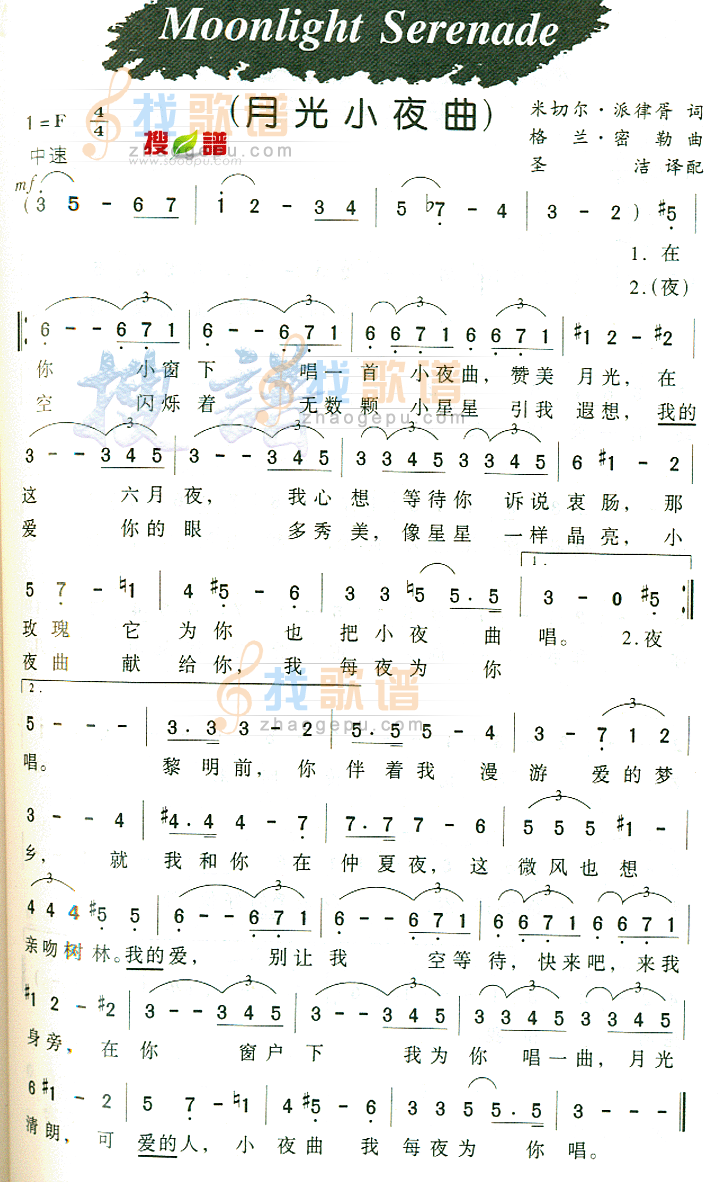 Moonlight Serenade
(月光小夜曲)
1=F 4/4
中速
米切尔·派律胥 词
格兰·密勒 曲
圣洁 译配
找歌谱
搜谱
www.sooopu.com
mf
(3 5 - 6 7 | i 2 - 3 4 | 5 ♭7 - 4 | 3 - 2) #5
1.在
2.(夜)
6 - - 6 7 1 | 6 - - 6 7 1 | 6 6 7 1 6 6 7 1 | #1 2 - #2
你 小窗下 唱一首 小夜曲，赞美 月光，在
空 闪烁着 无数颗 小星星 引我 遐想，我的
搜谱
找歌谱
zhaogepu.com
3 - - 3 4 5 | 3 - - 3 4 5 | 3 3 4 5 3 3 4 5 | 6 #1 - 2
这 六月夜， 我心想 等待你 诉说衷肠，那
爱 你的眼 多秀美，像星星 一样晶亮，小
1.
5 7 - ♮1 | 4 #5 - 6 | 3 3 ♮5 5.5 | 3 - 0 #5
玫瑰 它为你 也把小夜 曲唱。 2.夜
夜曲 献给你， 我每夜为 你
找歌谱
zhaogepu.com
2.
5 - - - | 3.3 3 - 2 | 5.5 5 - 4 | 3 - 7 1 2
唱。 黎明前，你 伴着我 漫游 爱的梦
3 - - 4 | #4.4 4 - 7 | 7.7 7 - 6 | 5 5 5 #1 -
乡， 就我和你 在仲夏夜，这 微风也想
4 4 4 #5 5 | 6 - - 6 7 1 | 6 - - 6 7 1 | 6 6 7 1 6 6 7 1
亲吻树林。我的爱， 别让我 空等待，快来吧，来我
#1 2 - #2 | 3 - - 3 4 5 | 3 - - 3 4 5 | 3 3 4 5 3 3 4 5
身旁，在你 窗户下 我为你 唱一曲，月光
6 #1 - 2 | 5 7 - ♮1 | 4 #5 - 6 | 3 3 5 5.5 | 3 - - -
清朗，可爱的人，小夜曲 我每夜为 你唱。